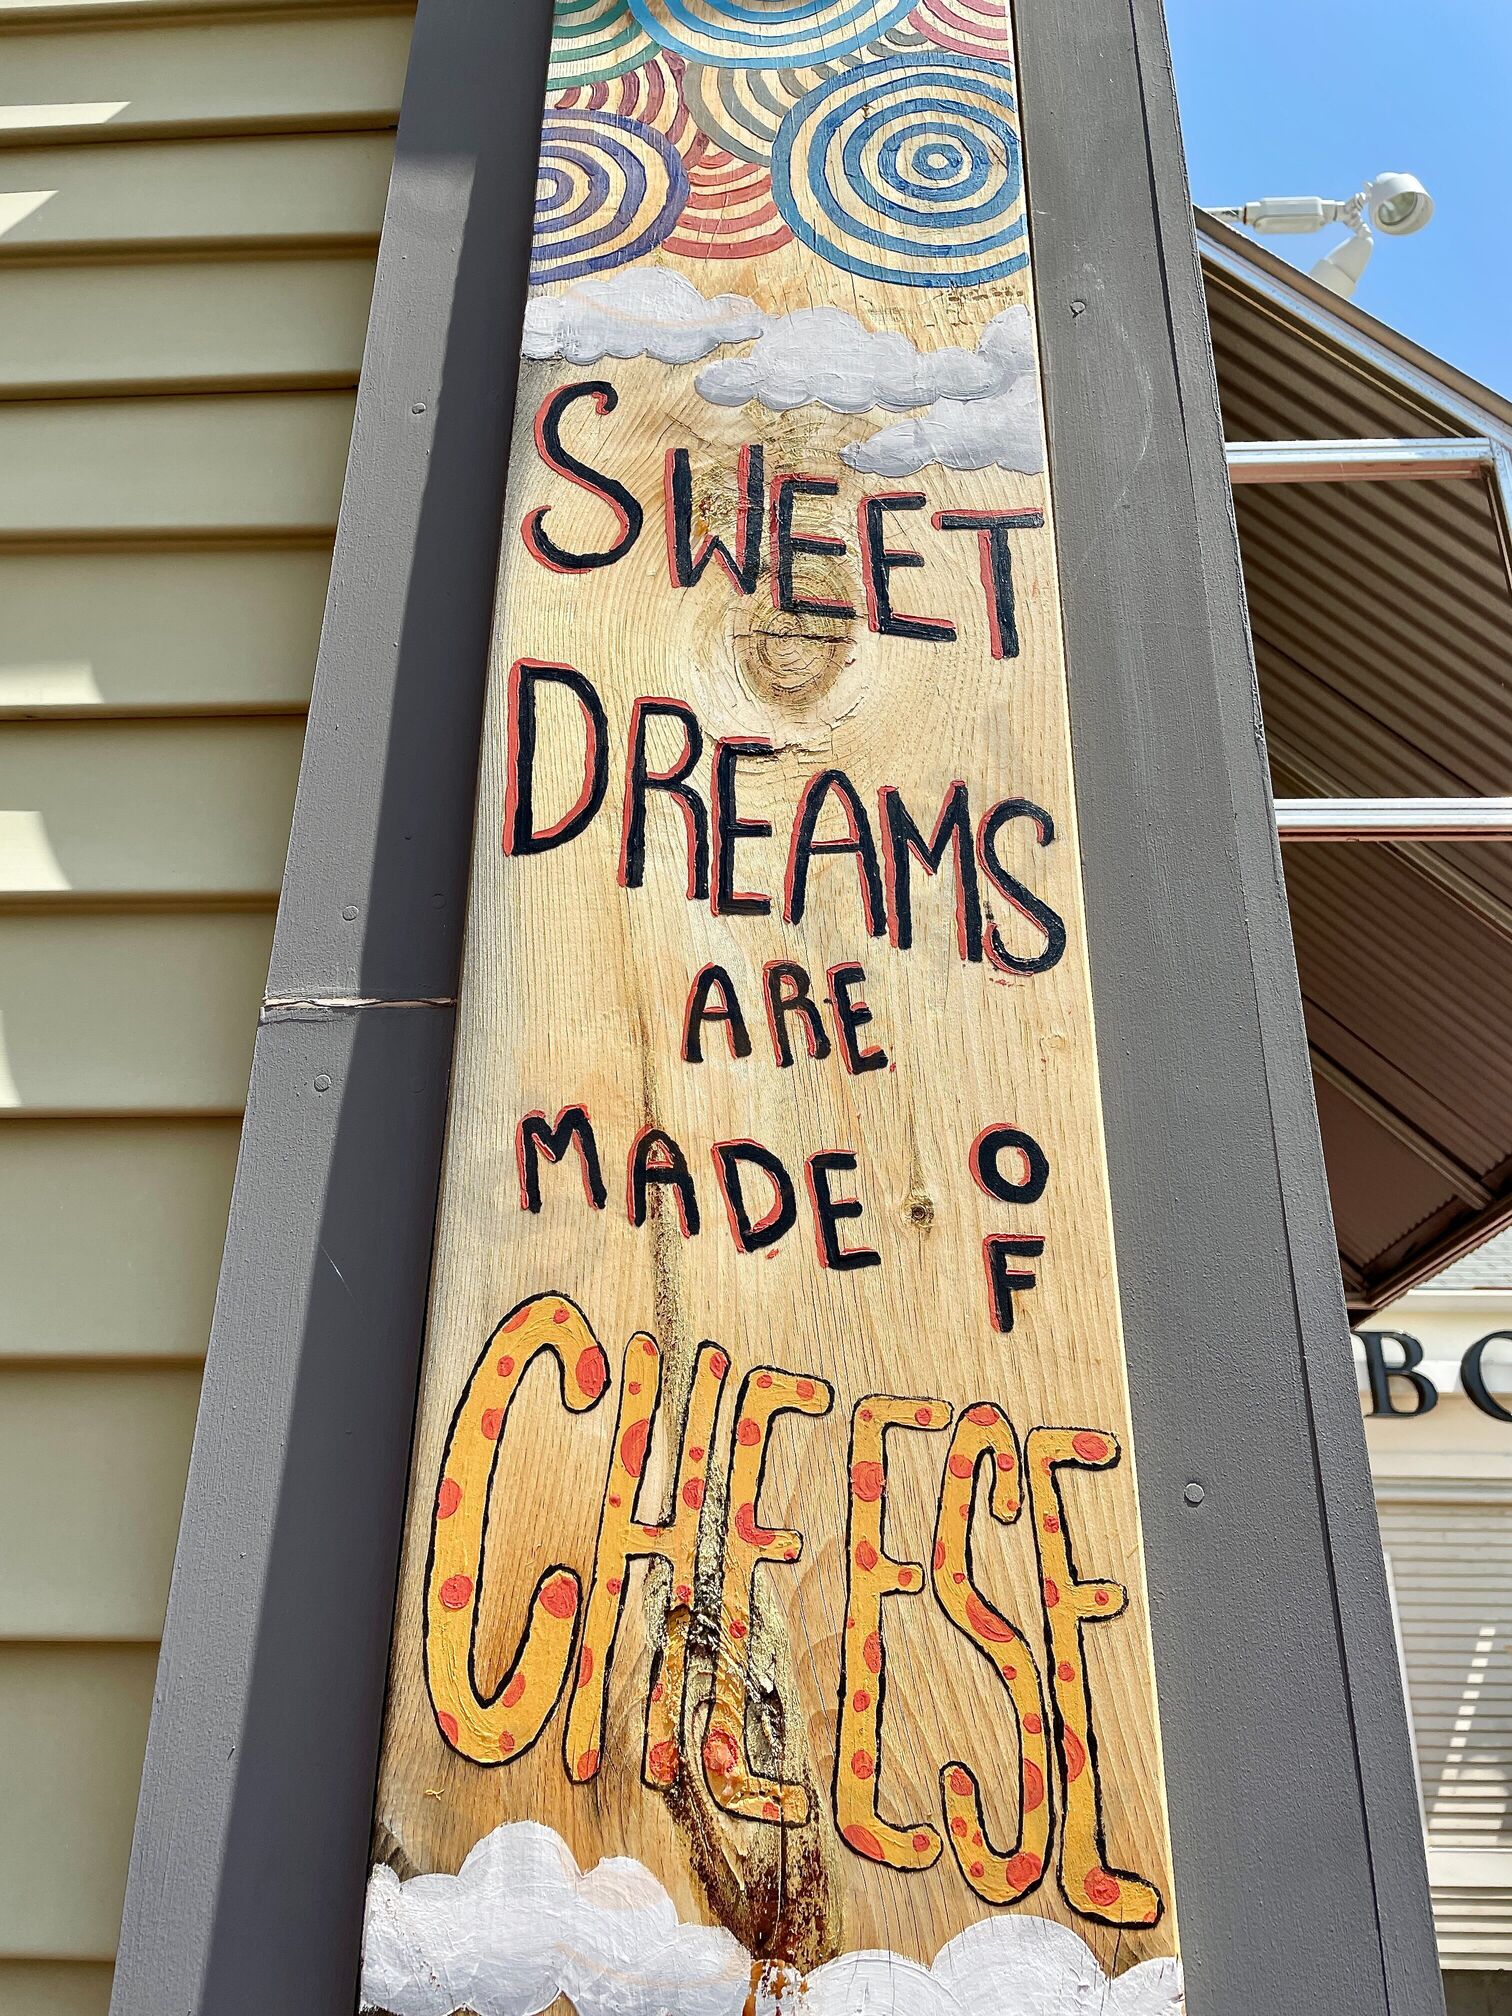 SWEET
DREAMS
ARE
MADE OF
CHEESE